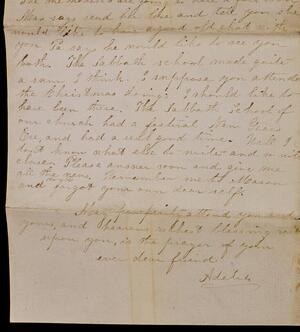 says send her love and tell you she
would like to have a good old chat with
you Pa says he would like to see you
both. The Sabbath school made quite
a sum, I think. I suppose you attended
the Christmas doings. I should like to
have been there. The Sabbath School of
our church had a festival New Years
Eve, and had a real good time. Well I
don't know what else to write and so will
close. Please answer soon and give me
all the news. Remember me to Mason
and forget your own dear self.
May prosperity attend you and
yours, and Heavens richest blessing rest
upon you, is the prayer of your
ever dear friend
Adelia